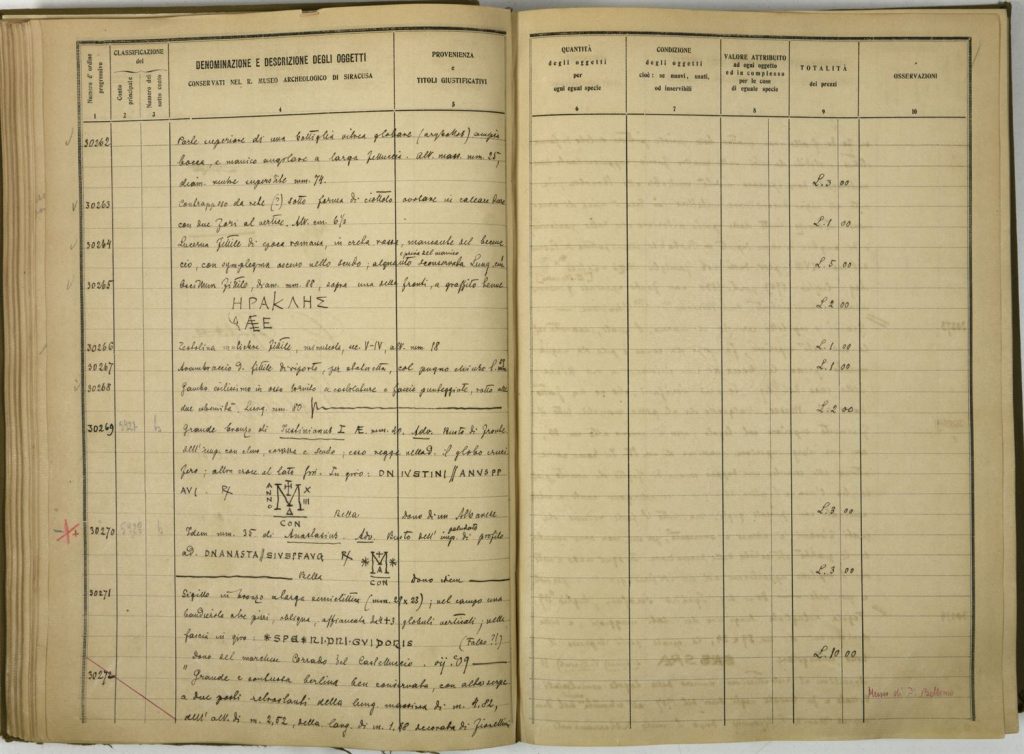 Numero d'ordine progressivo
CLASSIFICAZIONE
del
Conto principale
Numero del sotto conto
DENOMINAZIONE E DESCRIZIONE DEGLI OGGETTI
CONSERVATI NEL R. MUSEO ARCHEOLOGICO DI SIRACUSA
PROVENIENZA
e
TITOLI GIUSTIFICATIVI
1 2 3 4 5
30262 Parte superiore di una bottiglia vitrea globare (aryballos) ampia
bocca, e manico angolare a larga fettuccia. Alt. mass. mm. 25,
diam. ventre superstite mm. 74.
30263 Contrappeso da rete (?) sotto forma di ciottolo ovolare in calcare duro
con due fori al vertice. Alt. cm. 6½
30264 Lucerna fittile di epoca romana, in creta rossa, mancante del becuc
e priva del manico
cio, con symplegma osceno nello scudo; alquanto sconservata Lung. cm.
30265 Oscillum fittile, diam. mm. 88, sopra una delle fronti, a graffito bene
ΗΡΑΚΛΗΣ
30266 Testolina muliebre fittile, minuscola, sec. V-IV, alt. mm 18
30267 Avambraccio d. fittile di riporto, per statuetta, col pugno chiuso l.
30268 Gambo cilissimo in osso tornito a costolature e faccie punteggiate, rotto alle
due estremità. Lung. mm 80.
30269 5927 b Grande bronzo di Justinianus I Æ mm. 40. Adv. Busto di fronte
dell'imp. con elmo, corazza e scudo; esso regge nella d. il globo cruci
fero; altra croce al lato In giro: DN IVSTINI//ANVSPP
AVI. R/ ANNO M X III
CON
Bella Dono di un Albanese
30270 5928 b Idem mm. 35 di Anastasius. Adv. Busto paludato dell'imp. di profilo
a d. DNANASTA//SIVSPPAVG R/ *M*
CON
Bella Dono idem
30271 Sigillo in bronzo a larga (mm. 29 x 23); nel campo una
obliqua, affiancata da 2+3 globuli verticali, nella
faccia in giro: *SPG*RI·DRI·GVIDORIS (Falso?!)
Dono del marchese Corrado del Castelluccio.
30272 "Grande e sontuosa berlina ben conservata, con alto serpe
a due posti retrostanti della lung. massima di m. 4.82,
dell'alt. di m. 2,52, della larg. di m. 1.78 decorata di fiorellini
QUANTITÀ
degli oggetti
per
ogni egual specie
CONDIZIONE
degli oggetti
cioè: se nuovi, usati,
od inservibili
VALORE ATTRIBUITO
ad ogni oggetto
ed in complesso
per le cose
di eguale specie
TOTALITÀ
dei prezzi
OSSERVAZIONI
6 7 8 9 10
L. 3 00
L. 1 00
L. 5 00
L. 2 00
L. 1 00
L. 1 00
L. 2 00
L. 3 00
L. 3 00
L. 10 00
Museo di P. Bellomo